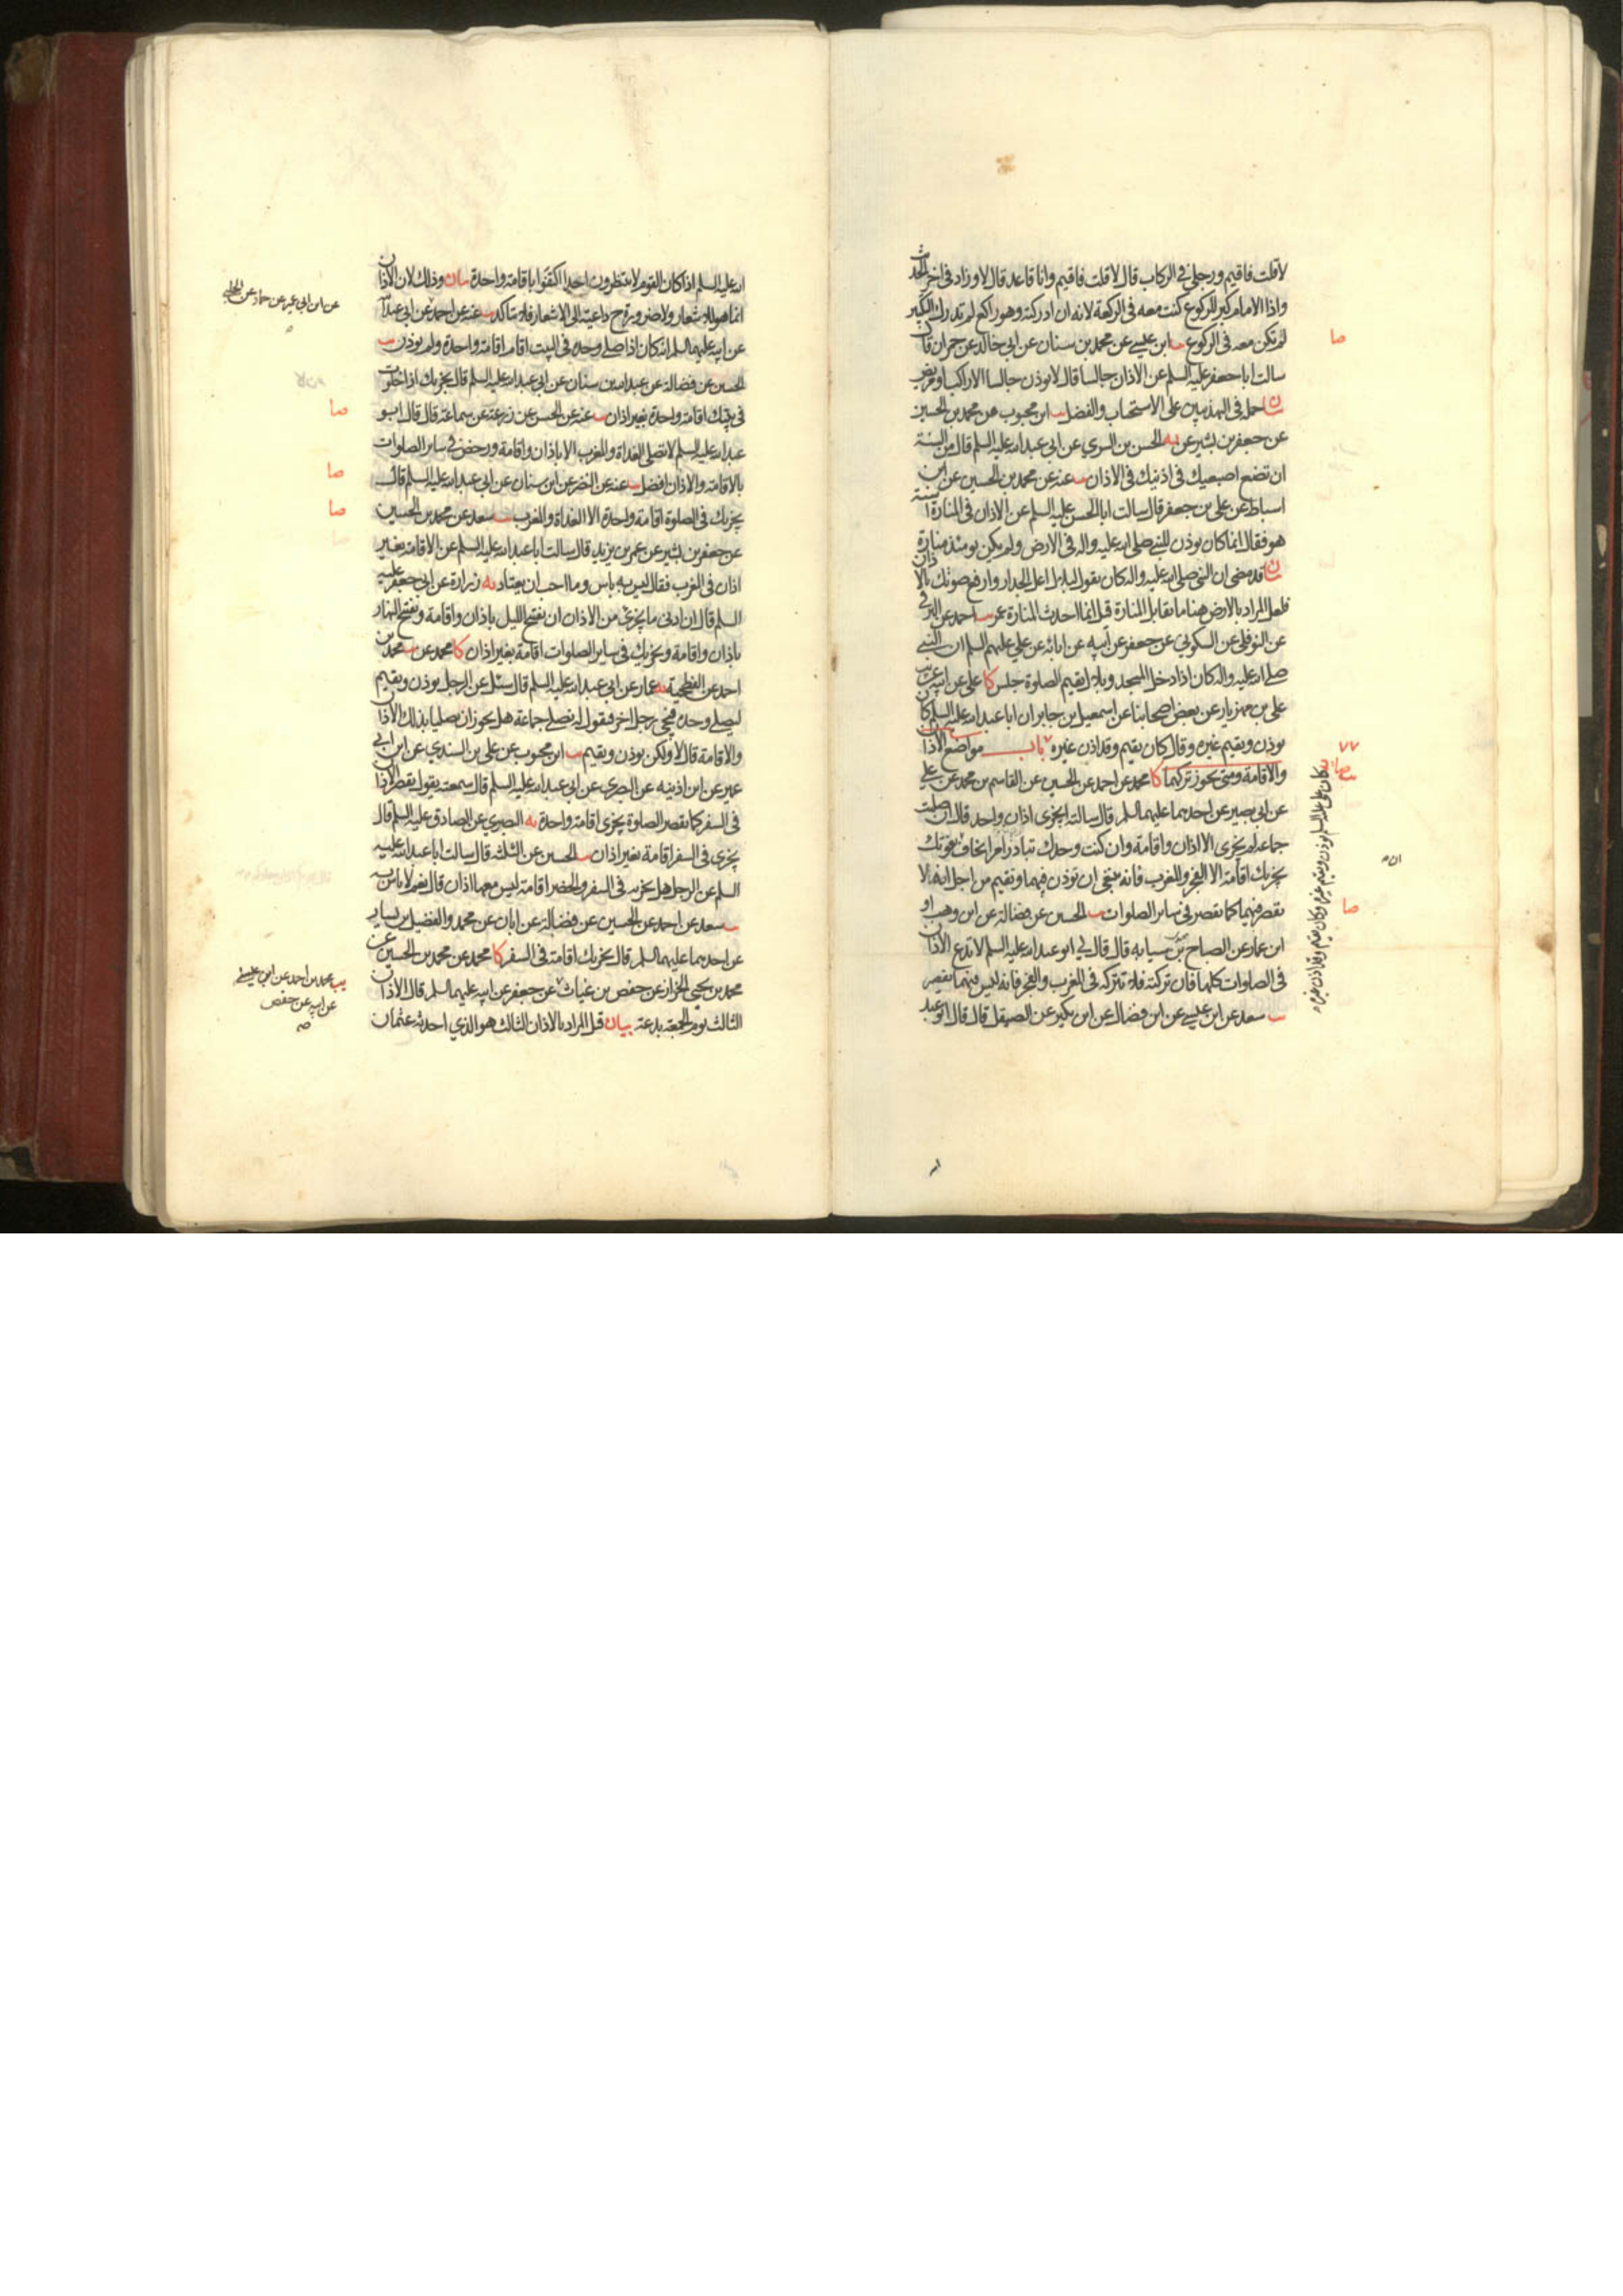 لا قلت فاقيم ورجلي في الركاب قال لا قلت فاقيم وانا قاعد قال لا وزاد في اخر الحديث
واذا الامام كبر للركوع كنت معه في الركعة لانه ان ادركته وهو راكع لم تدرك التكبير
لم تكن معه في الركوع ابن عيسى عن محمد بن سنان عن ابي خالد عن حمران قال
سالت ابا جعفر عليه السلم عن الاذان جالسا قال لا يوذن جالسا الا راكب او مريض
حمله في التهذيبين على الاستحباب والفضل ابن محبوب عن محمد بن الحسين
عن جعفر بن بشير عن الحسن بن السري عن ابي عبد الله عليه السلم قال من السنة
ان تضع اصبعيك في اذنيك في الاذان عنه عن محمد بن الحسين عن ابن
اسباط عن علي بن جعفر قال سالت ابا الحسن عليه السلم عن الاذان في المنارة اسنة
هو فقال انما كان يوذن للنبي صلى الله عليه واله في الارض ولم يكن يومئذ منارة
قد مضى ان النبي صلى الله عليه واله كان يقول لبلال اعل الجدار وارفع صوتك بالاذان
فلعل المراد بالارض هنا ما يقابل المنارة قيل انما احدث المنارة عمر احمد عن البرقي
عن النوفلي عن السكوني عن جعفر عن ابيه عن ابائه عن علي عليهم السلم ان النبي
صلى الله عليه واله كان اذا دخل المسجد وبلال يقيم الصلوة جلس كا علي عن ابيه عن
علي بن مهزيار عن بعض اصحابنا عن اسمعيل بن جابر ان ابا عبد الله عليه السلم كان
يوذن ويقيم غيره وقال كان يقيم وقد اذن غيره باب مواضع الاذان
والاقامة ومتى يجوز تركهما كا محمد عن احمد عن الحسين عن القاسم بن محمد عن علي
عن ابي بصير عن احدهما عليهما السلم قال سالته ايجزي اذان واحد قال ان صليت
جماعة لم يجزي الا اذان واقامة وان كنت وحدك تبادر امرا تخاف يفوتك
يجزيك اقامة الا الفجر والمغرب فانه ينبغي ان توذن فيهما وتقيم من اجل انه لا
يقصر فيهما كما يقصر في ساير الصلوات الحسين عن فضالة عن ابن وهب او
ابن عمار عن الصباح بن سيابه قال قال لي ابو عبد الله عليه السلم لا تدع الاذان
في الصلوات كلها فان تركته فلا تتركه في المغرب والفجر فانه ليس فيهما تقصير
سعد عن ابن عيسى عن ابن فضال عن ابن بكير عن الصيقل قال قال ابو عبد
صا
٧٧
كان علي عليه السلم يوذن ويقيم غيره وكان يقيم وقد اذن غيره
صا
الله عليه السلم اذا كان القوم لا ينتظرون احدا اكتفوا باقامة واحدة بيان وذلك لان الاذان
انما هو للاشعار ولا ضرورة ح داعية الى الاشعار فلا يتاكد عنه عن احمد عن ابي عبد الله
عن ابيه عليهما السلم انه كان اذا صلى وحده في البيت اقام اقامة واحدة ولم يوذن
الحسين عن فضالة عن عبد الله بن سنان عن ابي عبد الله عليه السلم قال يجزيك اذا خلوت
في بيتك اقامة واحدة بغير اذان عنه عن الحسن عن زرعة عن سماعة قال قال ابو
عبد الله عليه السلم لا تصلي الغداة والمغرب الا باذان واقامة ورخص في ساير الصلوات
بالاقامة والاذان افضل عنه عن النضر عن ابن سنان عن ابي عبد الله عليه السلم قال
يجزيك في الصلوة اقامة واحدة الا الغداة والمغرب سعد عن محمد بن الحسين
عن جعفر بن بشير عن عمر بن يزيد قال سالت ابا عبد الله عليه السلم عن الاقامة بغير
اذان في المغرب فقال ليس به باس وما احب ان يعتاد يه زرارة عن ابي جعفر عليه
السلم قال ان ادنى ما يجزي من الاذان ان تفتح الليل باذان واقامة وتفتح النهار
باذان واقامة ويجزيك في ساير الصلوات اقامة بغير اذان كا محمد عن محمد بن
احمد عن الفطحية عمار عن ابي عبد الله عليه السلم قال سئل عن الرجل يوذن ويقيم
ليصلي وحده فيجي رجل اخر فيقول له نصلي جماعة هل يجوز ان يصليا بذلك الاذان
والاقامة قال لا ولكن يوذن ويقيم ابن محبوب عن علي بن السندي عن ابن ابي
عمير عن ابن اذينه عن البصري عن ابي عبد الله عليه السلم قال سمعته يقول يقصر الاذان
في السفر كما يقصر الصلوة يجزي اقامة واحدة يه البصري عن الصادق عليه السلم قال
يجزي في السفر اقامة بغير اذان الحسين عن الثلثة قال سالت ابا عبد الله عليه
السلم عن الرجل هل يجزيه في السفر والحضر اقامة ليس معها اذان قال نعم لا باس به
سعد عن احمد عن الحسين عن فضالة عن ابان عن محمد والفضيل بن يسار
عن احدهما عليهما السلم قال يجزيك اقامة في السفر كا محمد عن محمد بن الحسين عن
محمد بن يحيى الخزاز عن حفص بن غياث عن جعفر عن ابيه عليهما السلم قال الاذان
الثالث يوم الجمعة بدعة بيان قيل المراد بالاذان الثالث هو الذي احدثه عثمان
عن ابن ابي عمير عن حماد عن الحلبي
صا
صا
صا
يب محمد بن احمد عن ابن عيسى
عن ابيه عن حفص